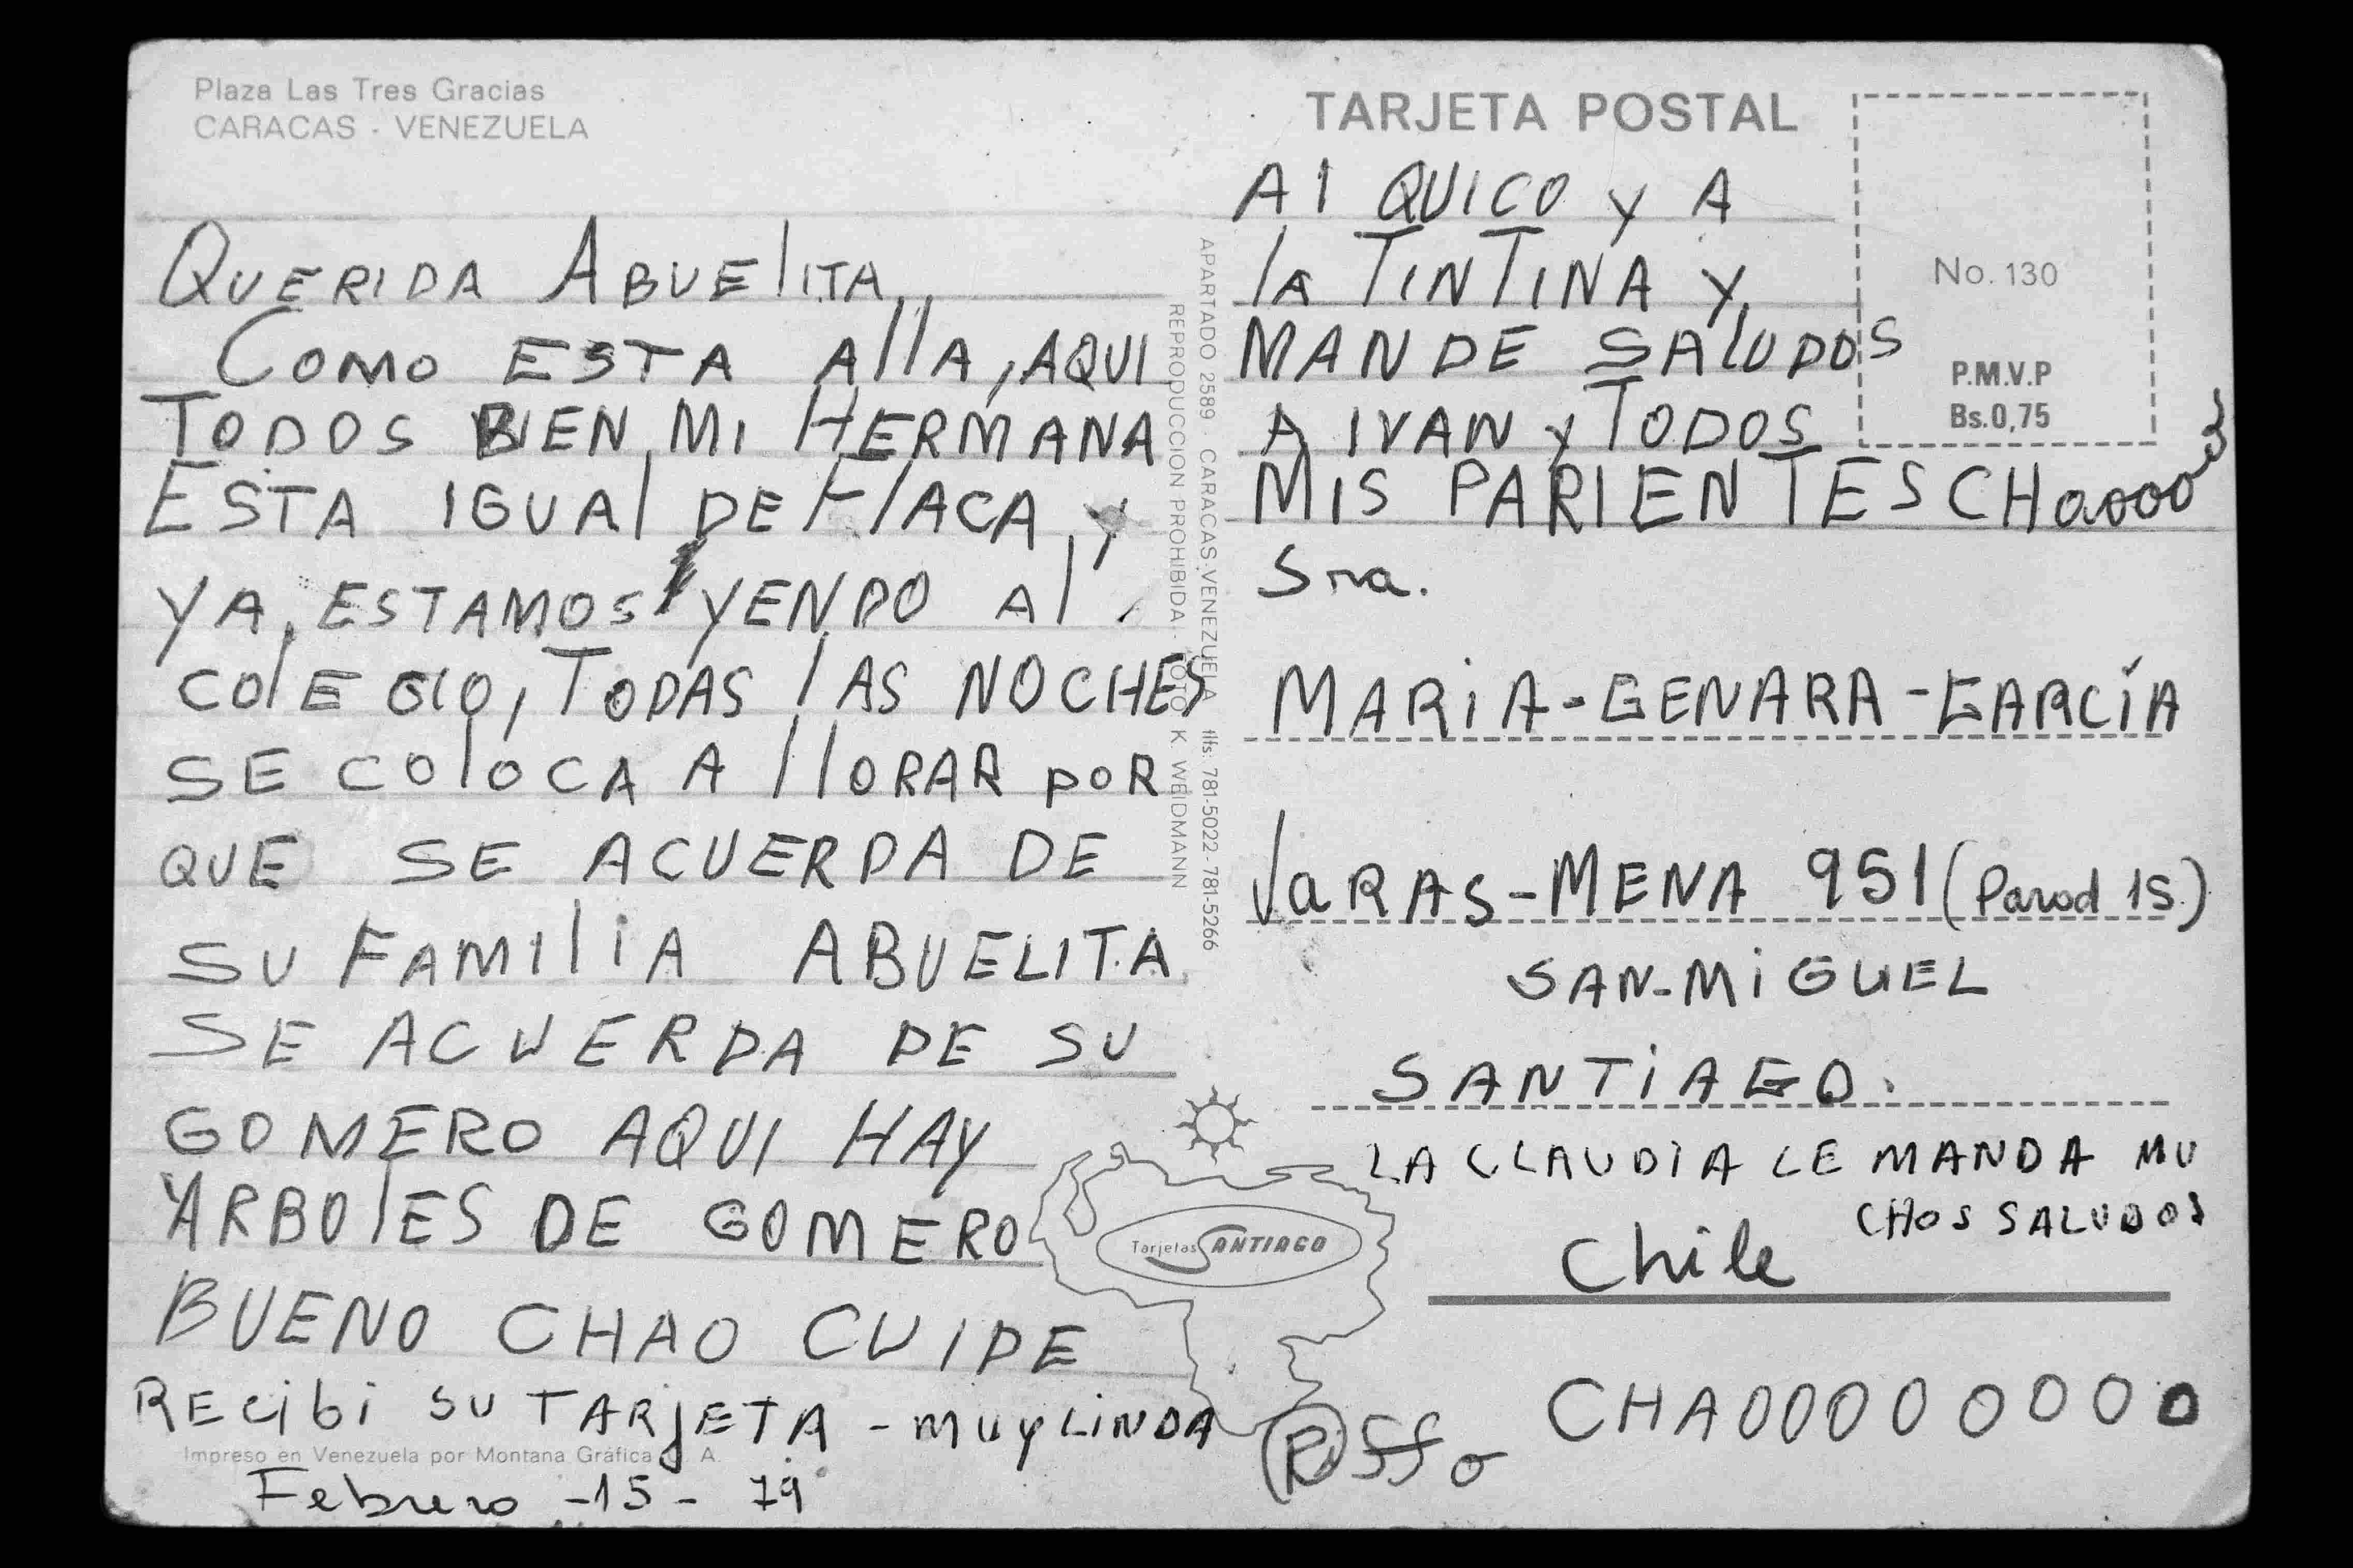 Plaza Las Tres Gracias
CARACAS - VENEZUELA
QUERIDA ABUELITA,
COMO ESTA AllA, AQUI
TODOS BIEN, MI HERMANA
ESTA IGUAL DE FLACA, Y
YA, ESTAMOS YENDO Al
COLEGIO, TODAS LAS NOCHES
SE COLOCA A LLORAR POR
QUE SE ACUERDA DE
SU FAMILIA ABUELITA
SE ACUERDA DE SU
GOMERO AQUI HAY
ARBOLES DE GOMERO
BUENO CHAO CUIDE
RECibi SU TARjETA - MUY LINDA
Impreso en Venezuela por Montana Gráfica A.
Febrero -15- 79
APARTADO 2589 - CARACAS-VENEZUELA Tlfs: 781-5022 - 781-5266
REPRODUCCION PROHIBIDA - FOTO K. WEIDMANN
Tarjetas SANTIAGO
TARJETA POSTAL
No. 130
P.M.V.P
Bs.0,75
Al QUICO Y A
lA TINTINA Y
MANDE SALUDOS
A IVAN Y TODOS
MIS PARIENTES CHaooo
Sra.
MARiA-GENARA-GARCÍA
VARAS-MENA 951 (Parad 15)
SAN-MiGUEL
SANTiAGO.
LA CLAUDIA LE MANDA MU
CHOS SALUDOS
Chile
CHAOOOOOOOO